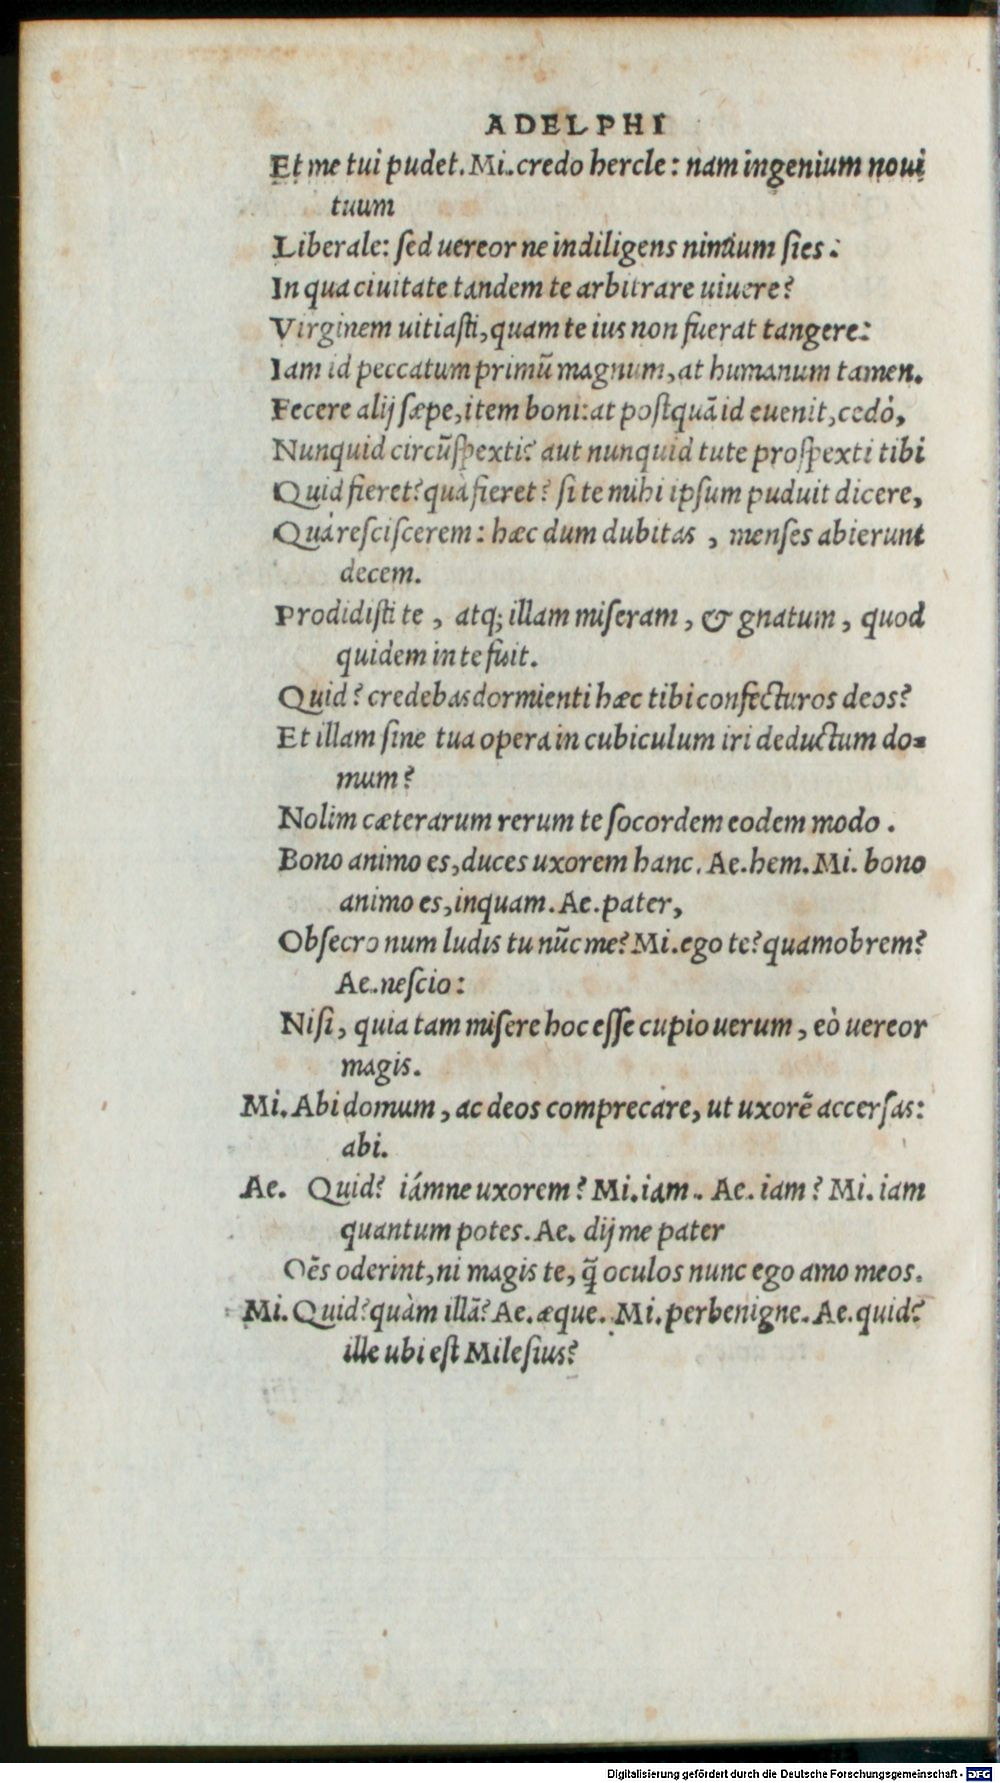 ADELPHI
Et me tui pudet. Mi. credo hercle: nam ingenium noui
tuum
Liberale: ſed uereor ne indiligens nimium ſies:
In qua ciuitate tandem te arbitrare uiuere?
Virginem uitiaſti, quam te ius non fuerat tangere:
Iam id peccatum primū magnum, at humanum tamen.
Fecere alij ſæpe, item boni: at poſtquā id euenit, cedò,
Nunquid circūſpexti? aut nunquid tute proſpexti tibi
Quid fieret? quà fieret? ſi te mihi ipſum puduit dicere,
Quà reſciſcerem: hæc dum dubitas, menſes abierunt
decem.
Prodidiſti te, atq; illam miſeram, & gnatum, quod
quidem in te fuit.
Quid? credebas dormienti hæc tibi confecturos deos?
Et illam ſine tua opera in cubiculum iri deductum do=
mum?
Nolim cæterarum rerum te ſocordem eodem modo.
Bono animo es, duces uxorem hanc. Ae. hem. Mi. bono
animo es, inquam. Ae. pater,
Obſecro num ludis tu nūc me? Mi. ego te? quamobrem?
Ae. neſcio:
Niſi, quia tam miſere hoc eſſe cupio uerum, eò uereor
magis.
Mi. Abi domum, ac deos comprecare, ut uxorē accerſas:
abi.
Ae. Quid? iámne uxorem? Mi. iam. Ae. iam? Mi. iam
quantum potes. Ae. dij me pater
Oēs oderint, ni magis te, q̄ oculos nunc ego amo meos.
Mi. Quid? quàm illā? Ae. æque. Mi. perbenigne. Ae. quid?
ille ubi eſt Mileſius?
Digitalisierung gefördert durch die Deutsche Forschungsgemeinschaft - DFG